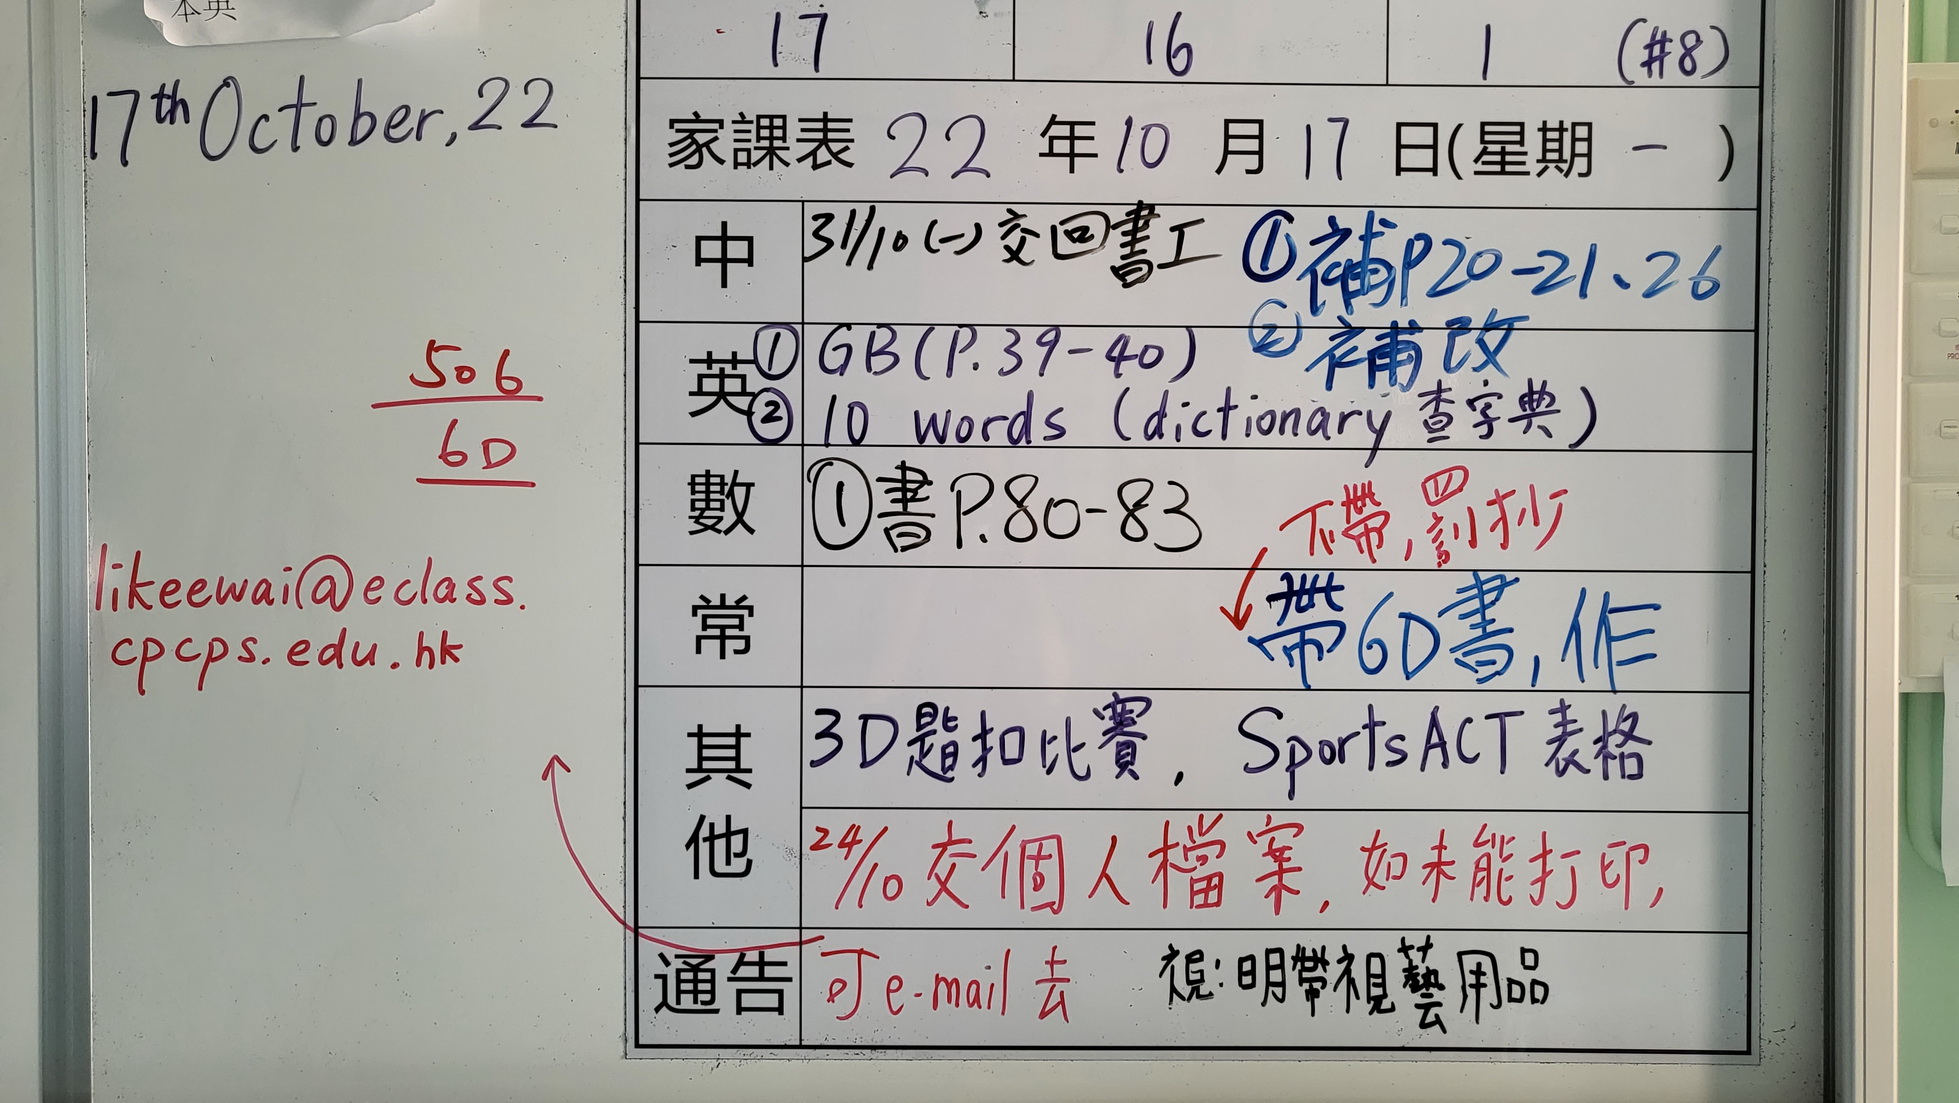 本英
17 16 1 (#8)
17th October, 22
家課表 22 年 10 月 17 日(星期 一 )
中 31/10 (一) 交回書工 ①補P20-21、26
②補改
英 ① GB (P.39-40)
② 10 words (dictionary 查字典)
數 ①書P.80-83
不帶, 罰抄
常 帶6D書, 作
其他 3D匙扣比賽, SportsACT 表格
24/10 交個人檔案, 如未能打印,
通告 可e-mail去 視:明帶視藝用品
506
6D
likeewai@eclass.
cpcps.edu.hk